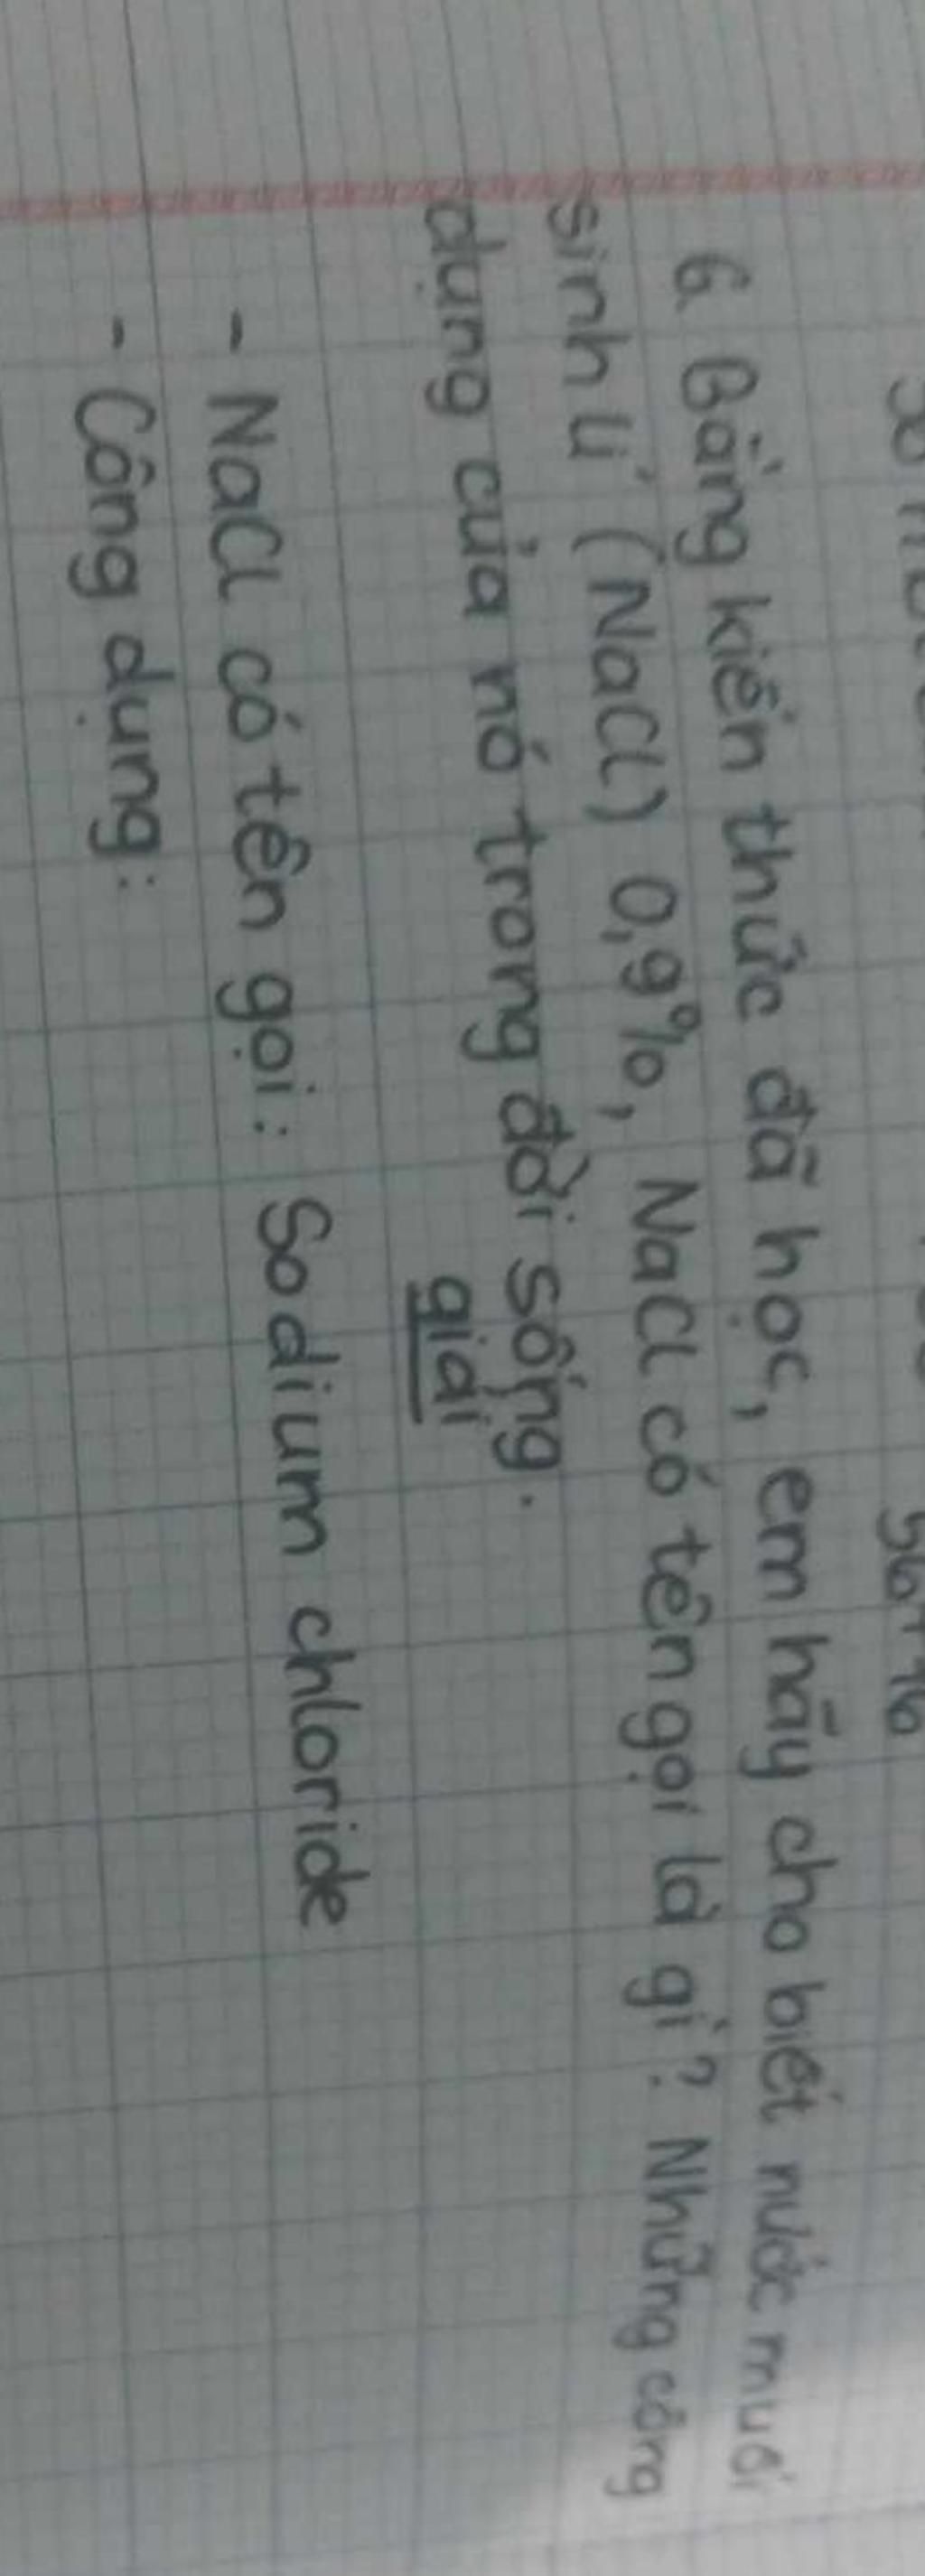 6. Bằng kiến thức đã học, em hãy cho biết nước muối
sinh lí (NaCl) 0,9%, NaCl có tên gọi là gì? Những công
dụng của nó trong đời sống.
giải
- NaCl có tên gọi: Sodium chloride
- Công dụng: